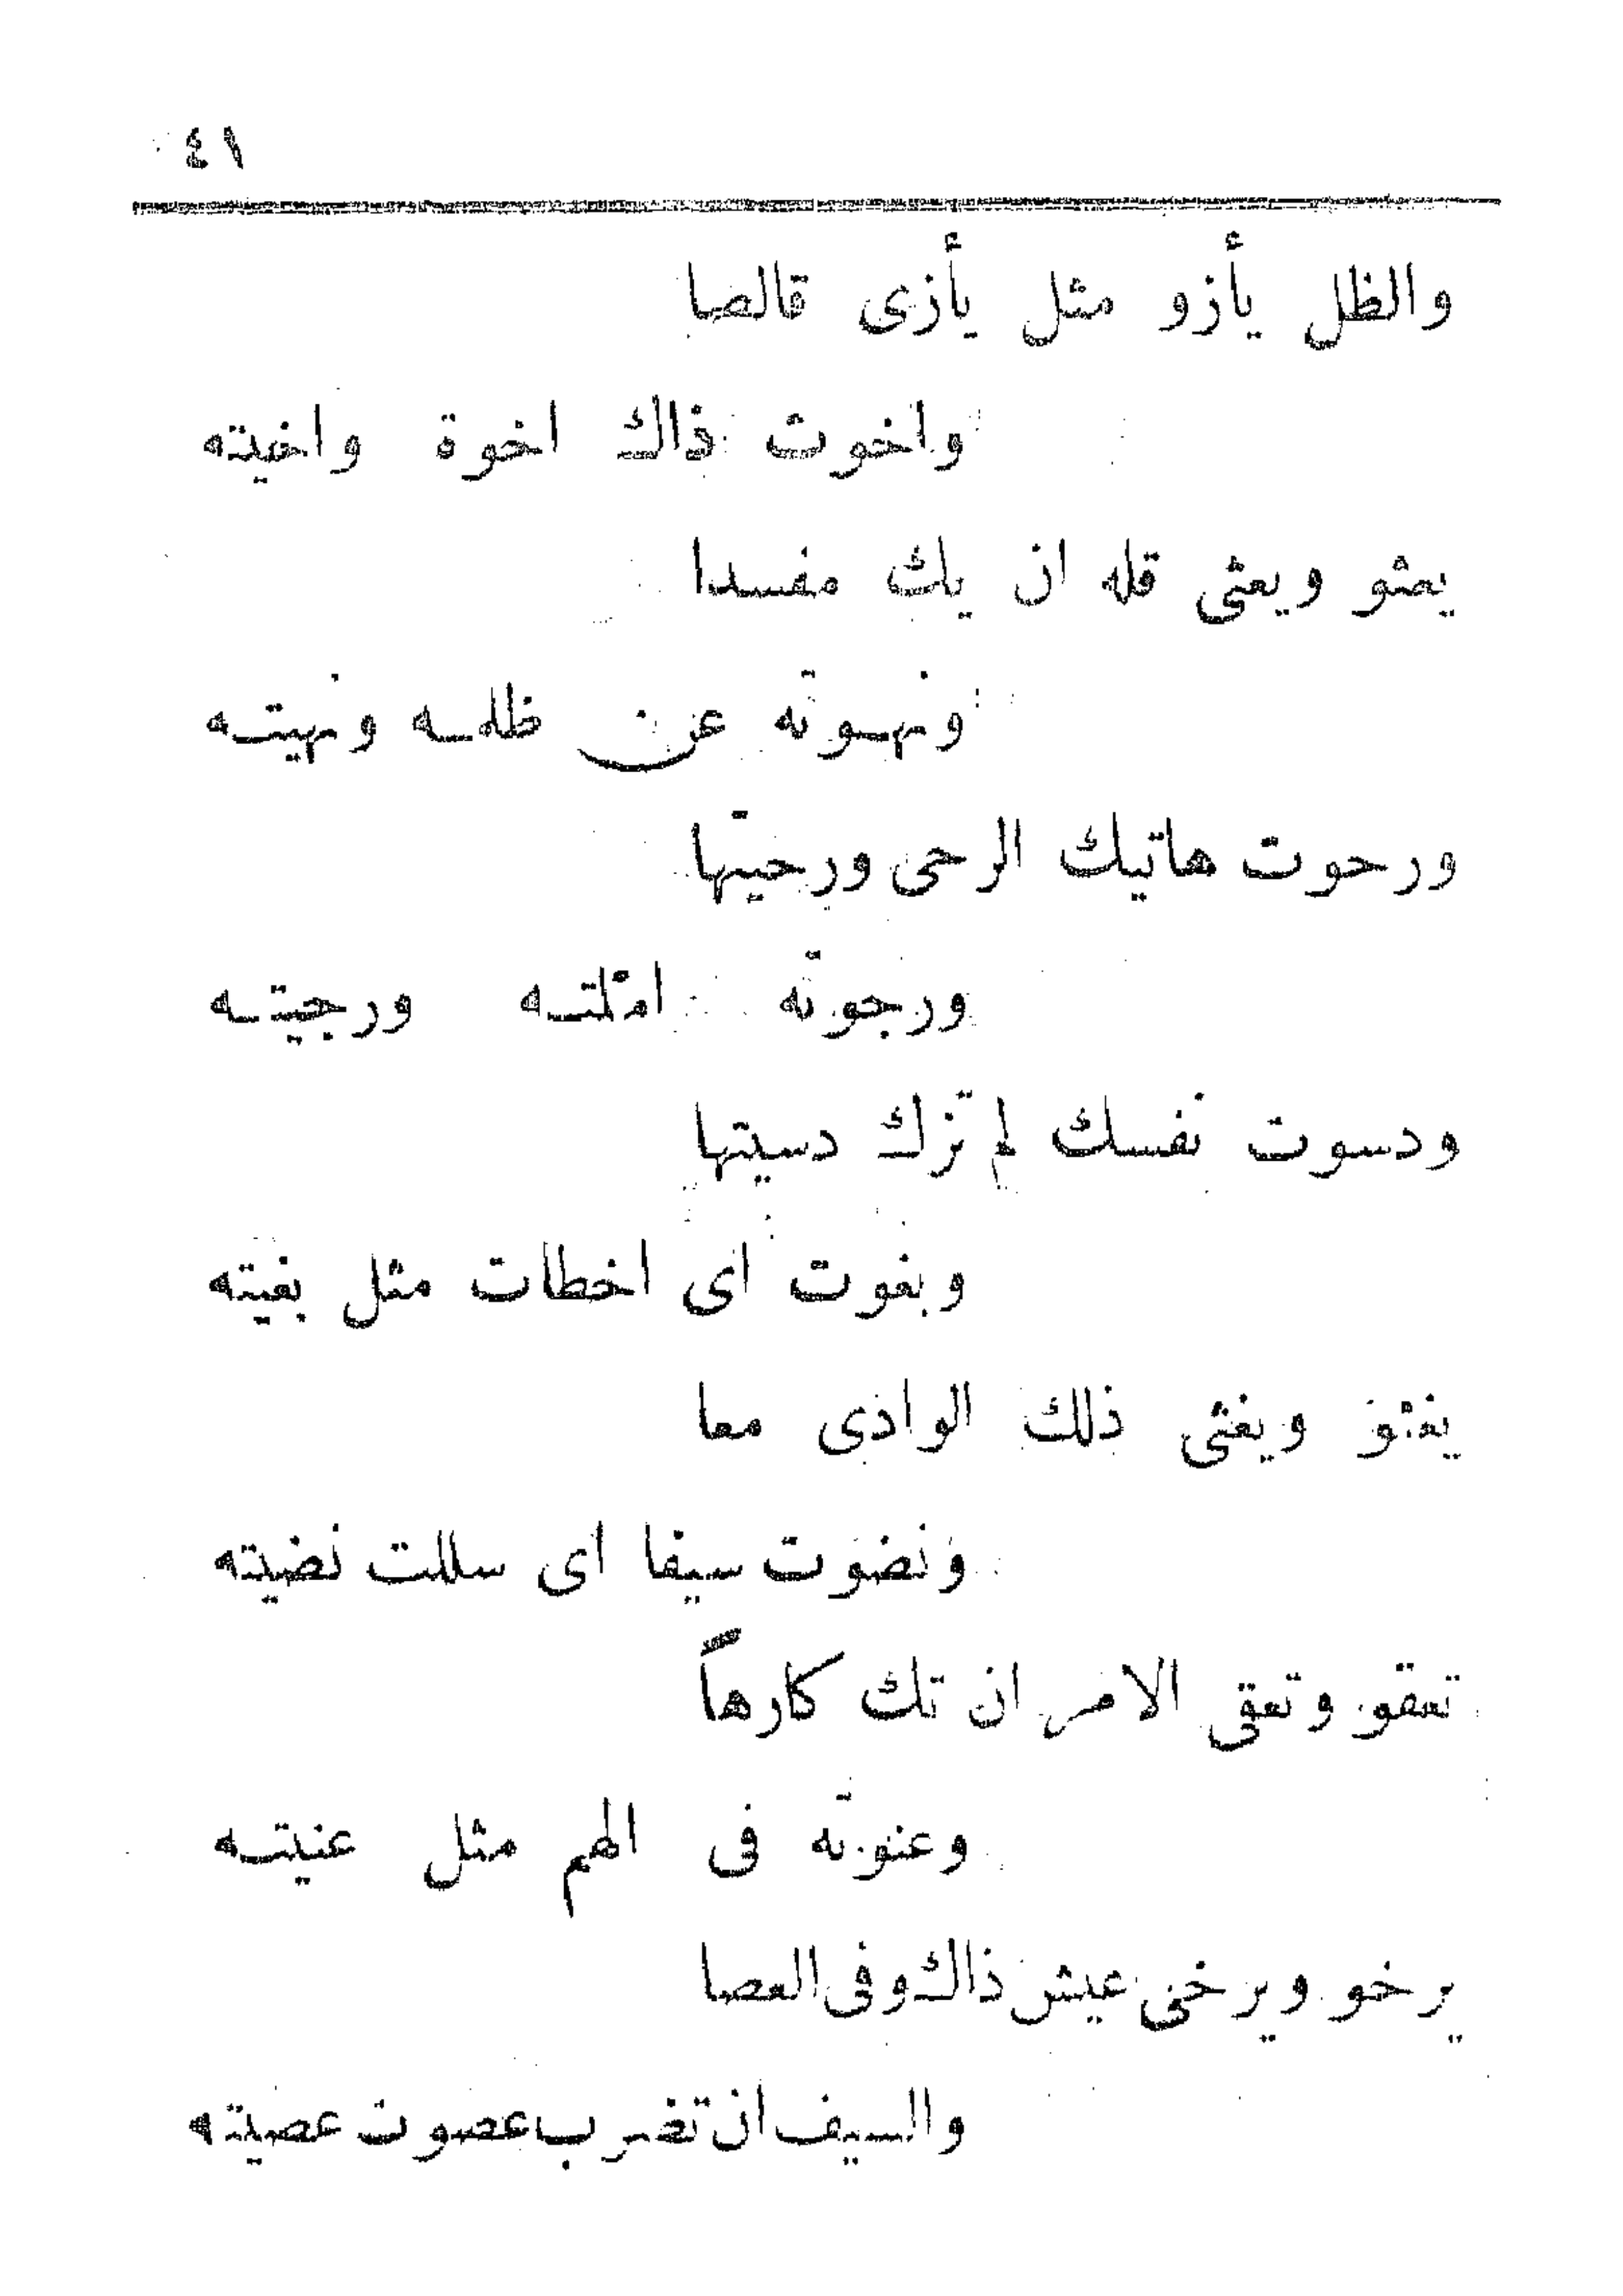 ٤١
والظل يأزو مثل يأزى قالصا
واخوت ذاك اخوة واخيته
يعثو ويعثى قله ان يك مفسدا
ونهوته عن ظلمه ونهيته
ورحوت هاتيك الرحى ورحيتها
ورجوته امّلته ورجيته
ودسوت نفسك لم تزك دسيتها
وبغوت اى اخطات مثل بغيته
يغثو ويغثى ذلك الوادى معا
ونضوت سيفا اى سللت نضيته
تعقو وتعقى الامر ان تك كارهاً
وعنوته فى الهم مثل عنيته
يرخو ويرخى عيش ذاك وفى العصا
والسيف ان تضرب عصوت عصيته